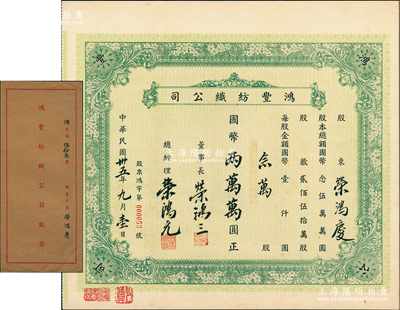 鴻豐紡織公司
股東 榮鴻慶
股本總額國幣 念伍萬萬圓
股數 貳佰伍拾萬股
每股金額國幣 壹仟圓
念萬股
國幣 兩萬萬圓正
董事長 榮鴻三
總經理 榮鴻元
股票鴻字第 000053 號
中華民國卅五年九月壹日
鴻豐紡織公司股票
榮鴻慶
上海陽明拍賣